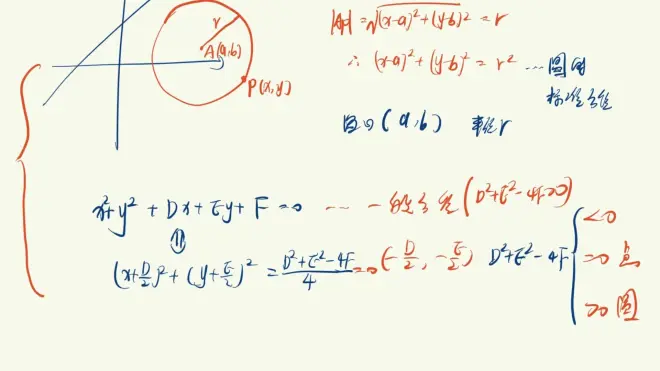 r
A(a,b)
P(x,y)
|AP|=√(x-a)²+(y-b)² = r
∴ (x-a)²+(y-b)² = r² ... 圆的
标准方程
圆心(a,b) 半径r
x²+y²+Dx+Ey+F=0 ... 一般方程(D²+E²-4F>0)
(x+D/2)²+(y+E/2)² = D²+E²-4F/4 =0 (-D/2,-E/2) D²+E²-4F
<0
=0 点
>0 圆